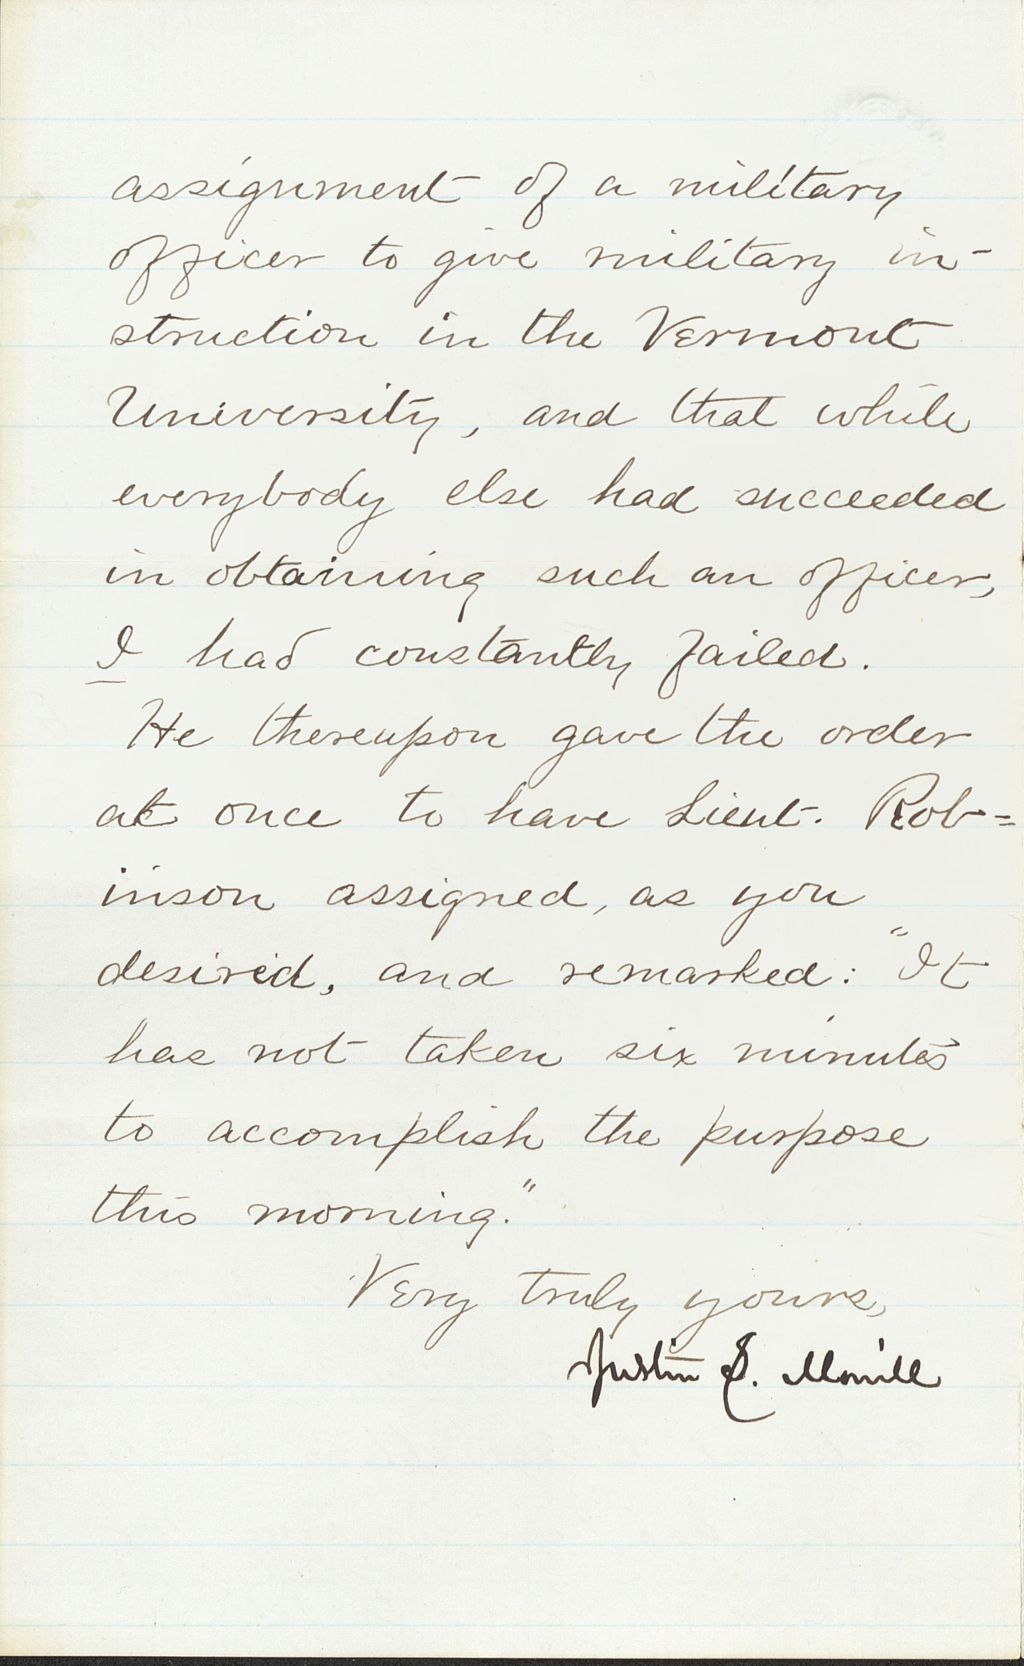 assignment of a military
officer to give military in-
struction in the Vermont
University, and that while
everybody else had succeeded
in obtaining such an officer,
I had constantly failed.
He thereupon gave the order
at once to have Lieut. Rob=
inson assigned, as you
desired, and remarked: "It
has not taken six minutes
to accomplish the purpose
this morning."
Very truly yours,
Justin S. Morrill